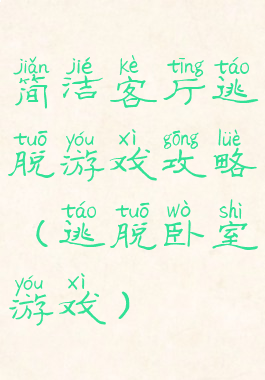 jiǎn jié kè tīng táo
简洁客厅逃
tuō yóu xì gōng lüè
脱游戏攻略
táo tuō wò shì
（逃脱卧室
yóu xì
游戏）